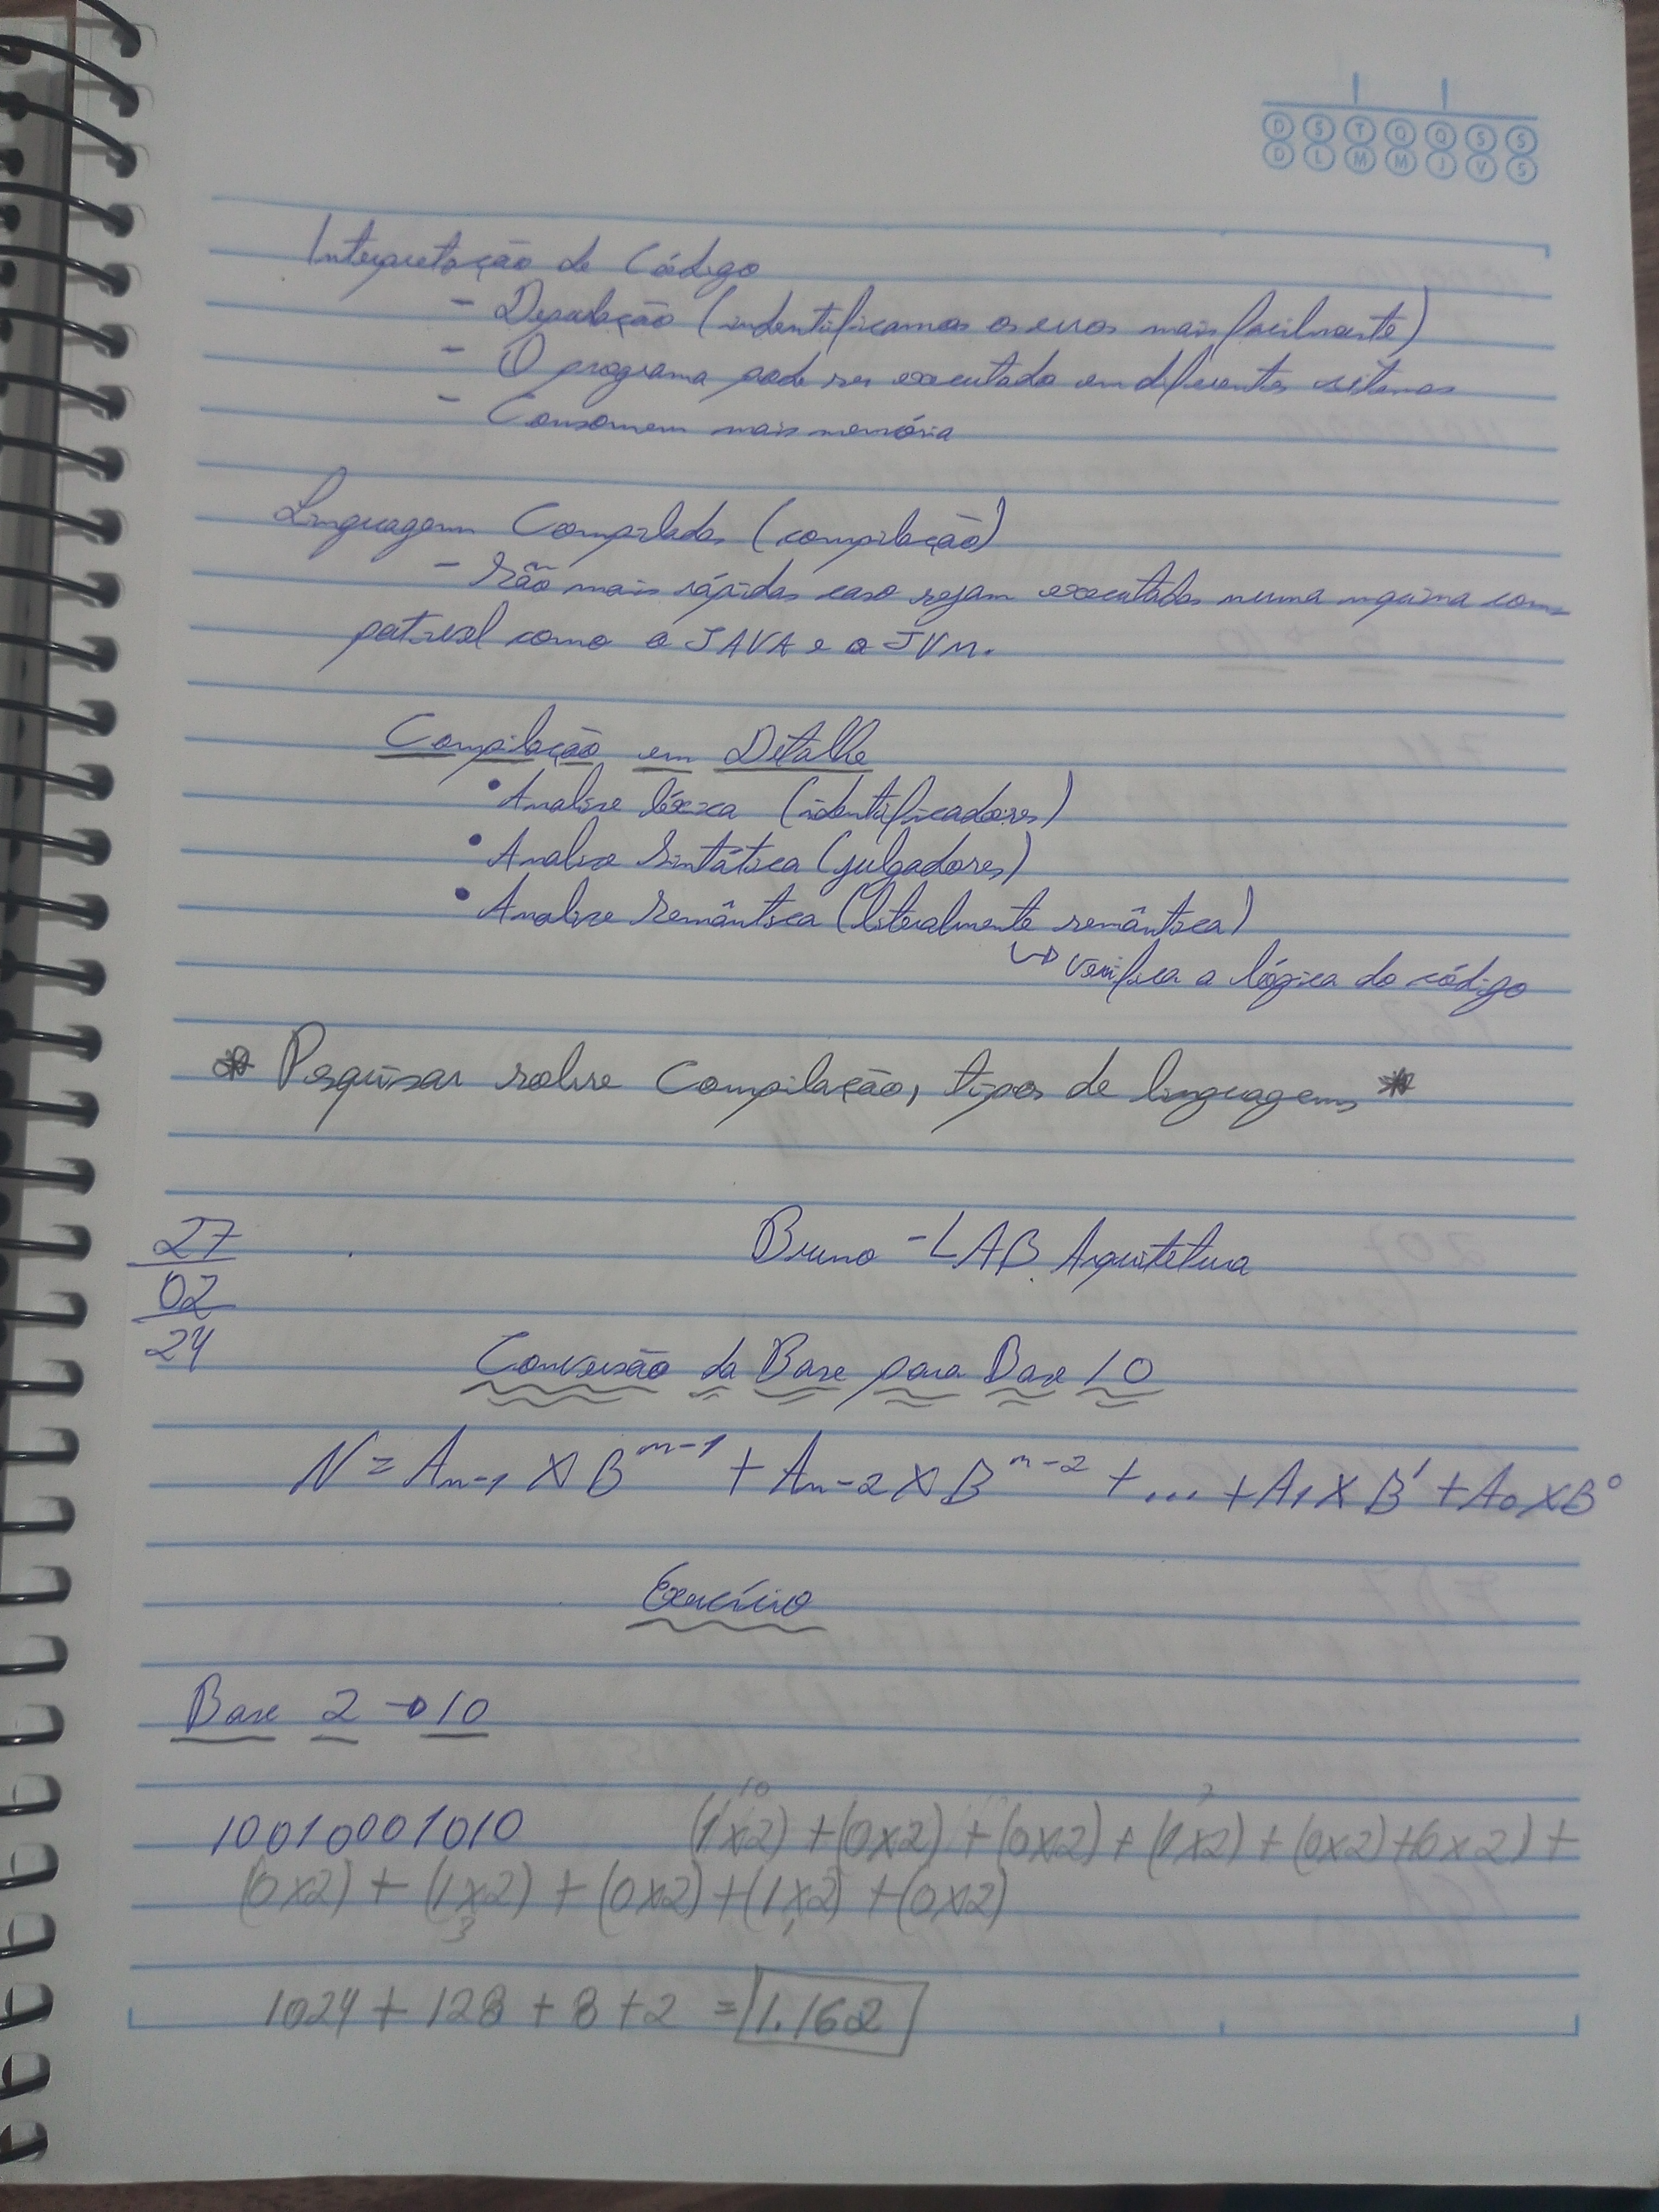 D S T Q Q S S
D L M M J V S
Interpretação de Código
- Depuração (indentificamos os erros mais facilmente)
- O programa pode ser executado em diferentes sitemas
- Consomem mais memória
Linguagem Compilada (compilação)
- São mais rápidas caso sejam executadas numa mquina com-
pativel como o JAVA e a JVM.
Compilação em Detalhe
• Analise léxica (identificadores)
• Analise Sintática (julgadores)
• Analise Semântica (literalmente semântica)
↳ verifica a lógica do código
* Pesquisar sobre Compilação, tipos de linguagens *
27
02
24
Bruno - LAB. Arquitetura
Conversão da Base para Base 10
N = An-1 x B^n-1 + An-2 x B^n-2 + ... + A1 x B^1 + A0 x B^0
Exercício
Base 2 → 10
10010001010 (1x2)^10 + (0x2) + (0x2) + (1x2)^7 + (0x2) + (0x2) +
(0x2) + (1x2)^3 + (0x2) + (1x2)^1 + (0x2)
1024 + 128 + 8 + 2 = 1.162